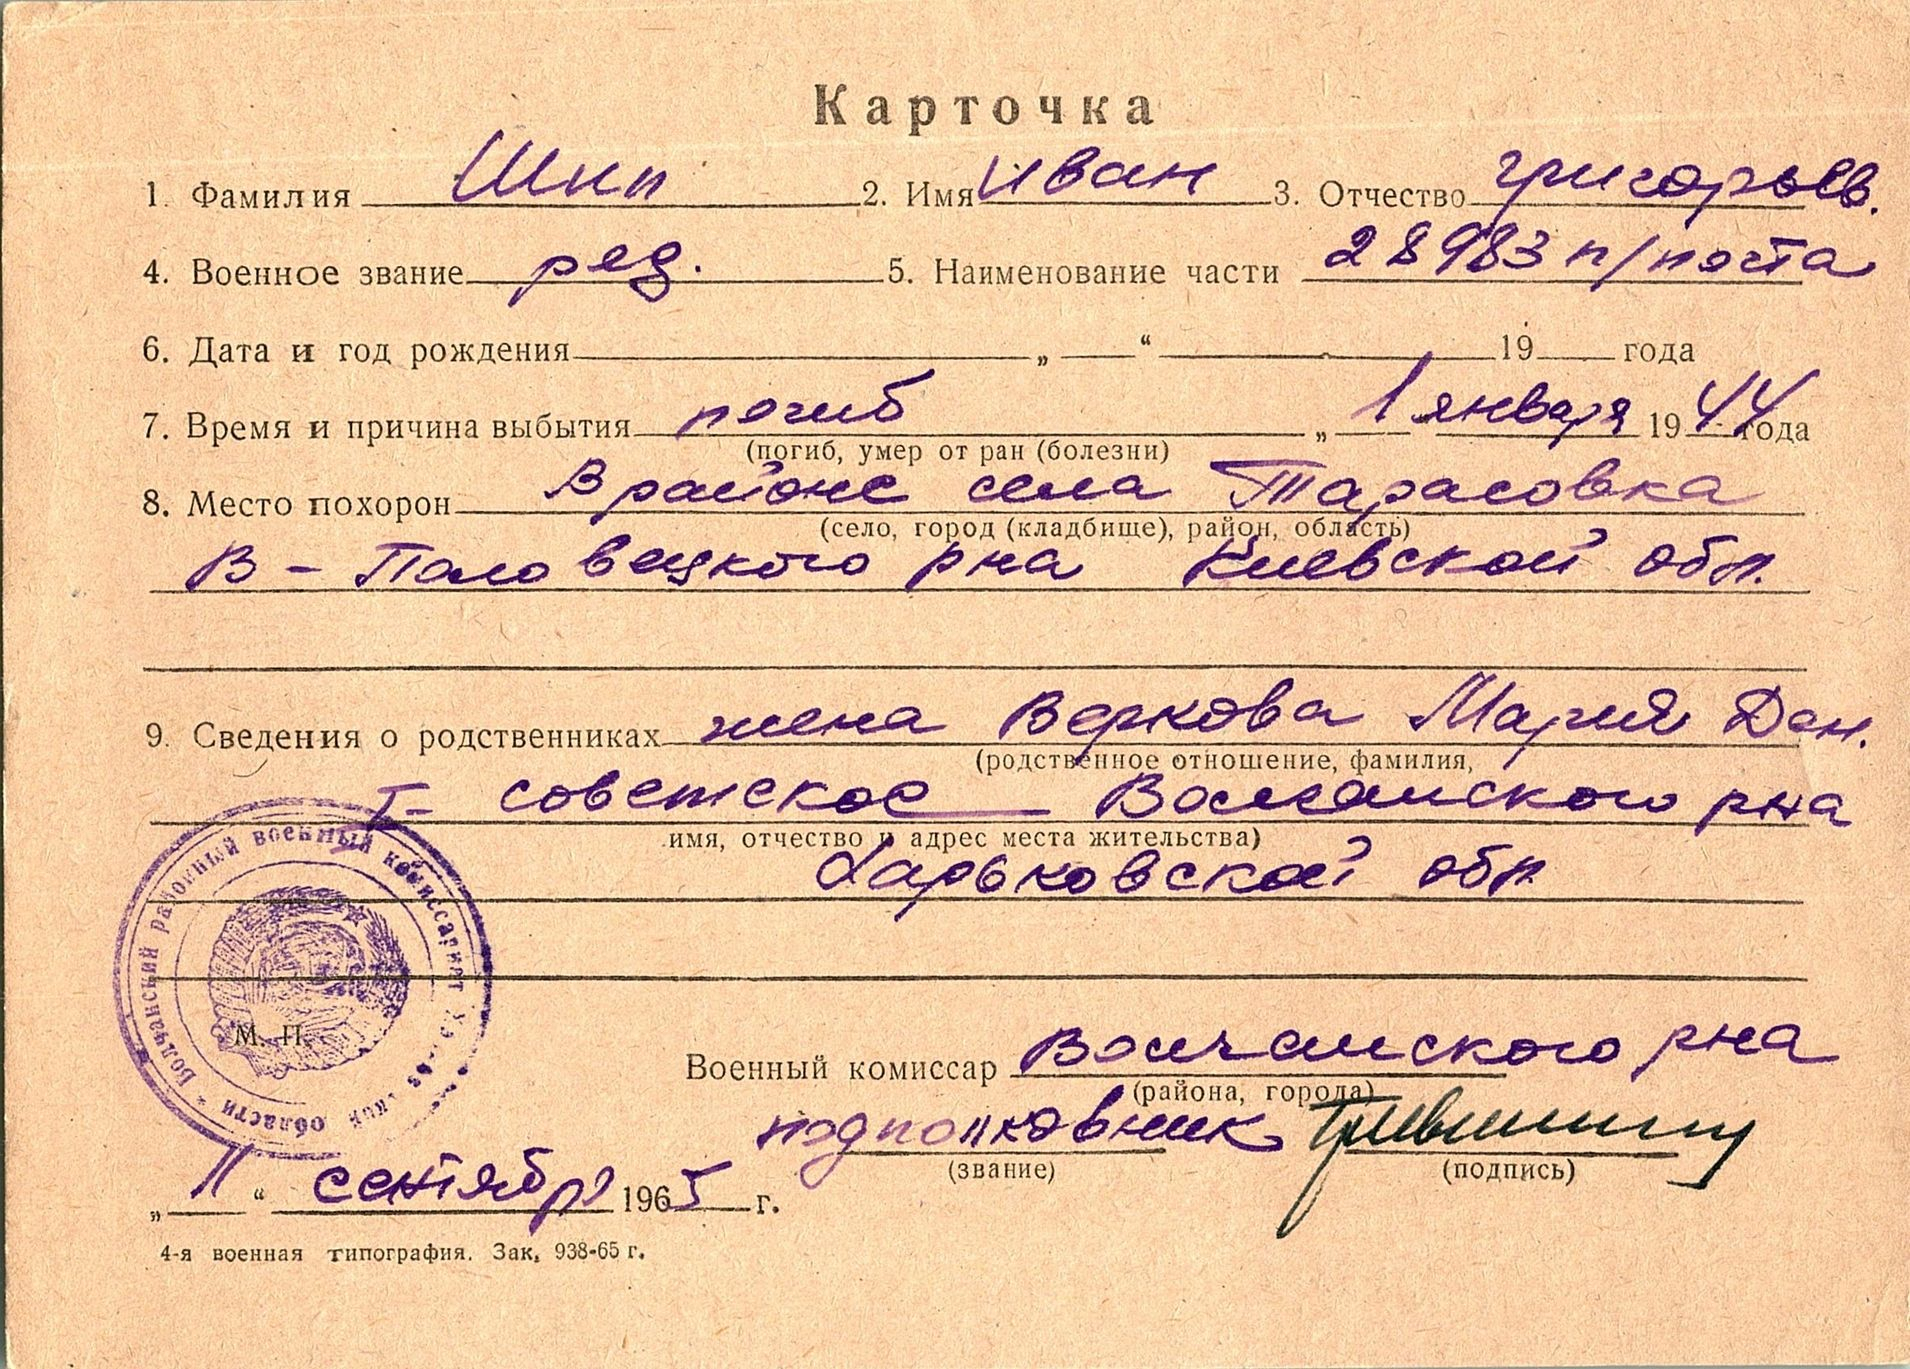 Карточка
1. Фамилия Шкп 2. Имя Иван 3. Отчество Григорьев.
4. Военное звание ряд. 5. Наименование части 28983 п/почта
6. Дата и год рождения „ “ 19 года
7. Время и причина выбытия погиб „ 1 января 1944 года
(погиб, умер от ран (болезни)
8. Место похорон В районе села Тарасовка
(село, город (кладбище), район, область)
В-Половецкого р-на Киевской обл.
9. Сведения о родственниках жена Веркова Мария Дан.
(родственное отношение, фамилия,
Т- советское Волчанского р-на
имя, отчество и адрес места жительства)
Харьковской обл.
Волчанский районный военный комиссариат Харьковской области *
М. П.
Военный комиссар Волчанского р-на
(района, города)
подполковник
(звание) (подпись)
„ 11 “ сентября 1965 г.
4-я военная типография. Зак. 938-65 г.